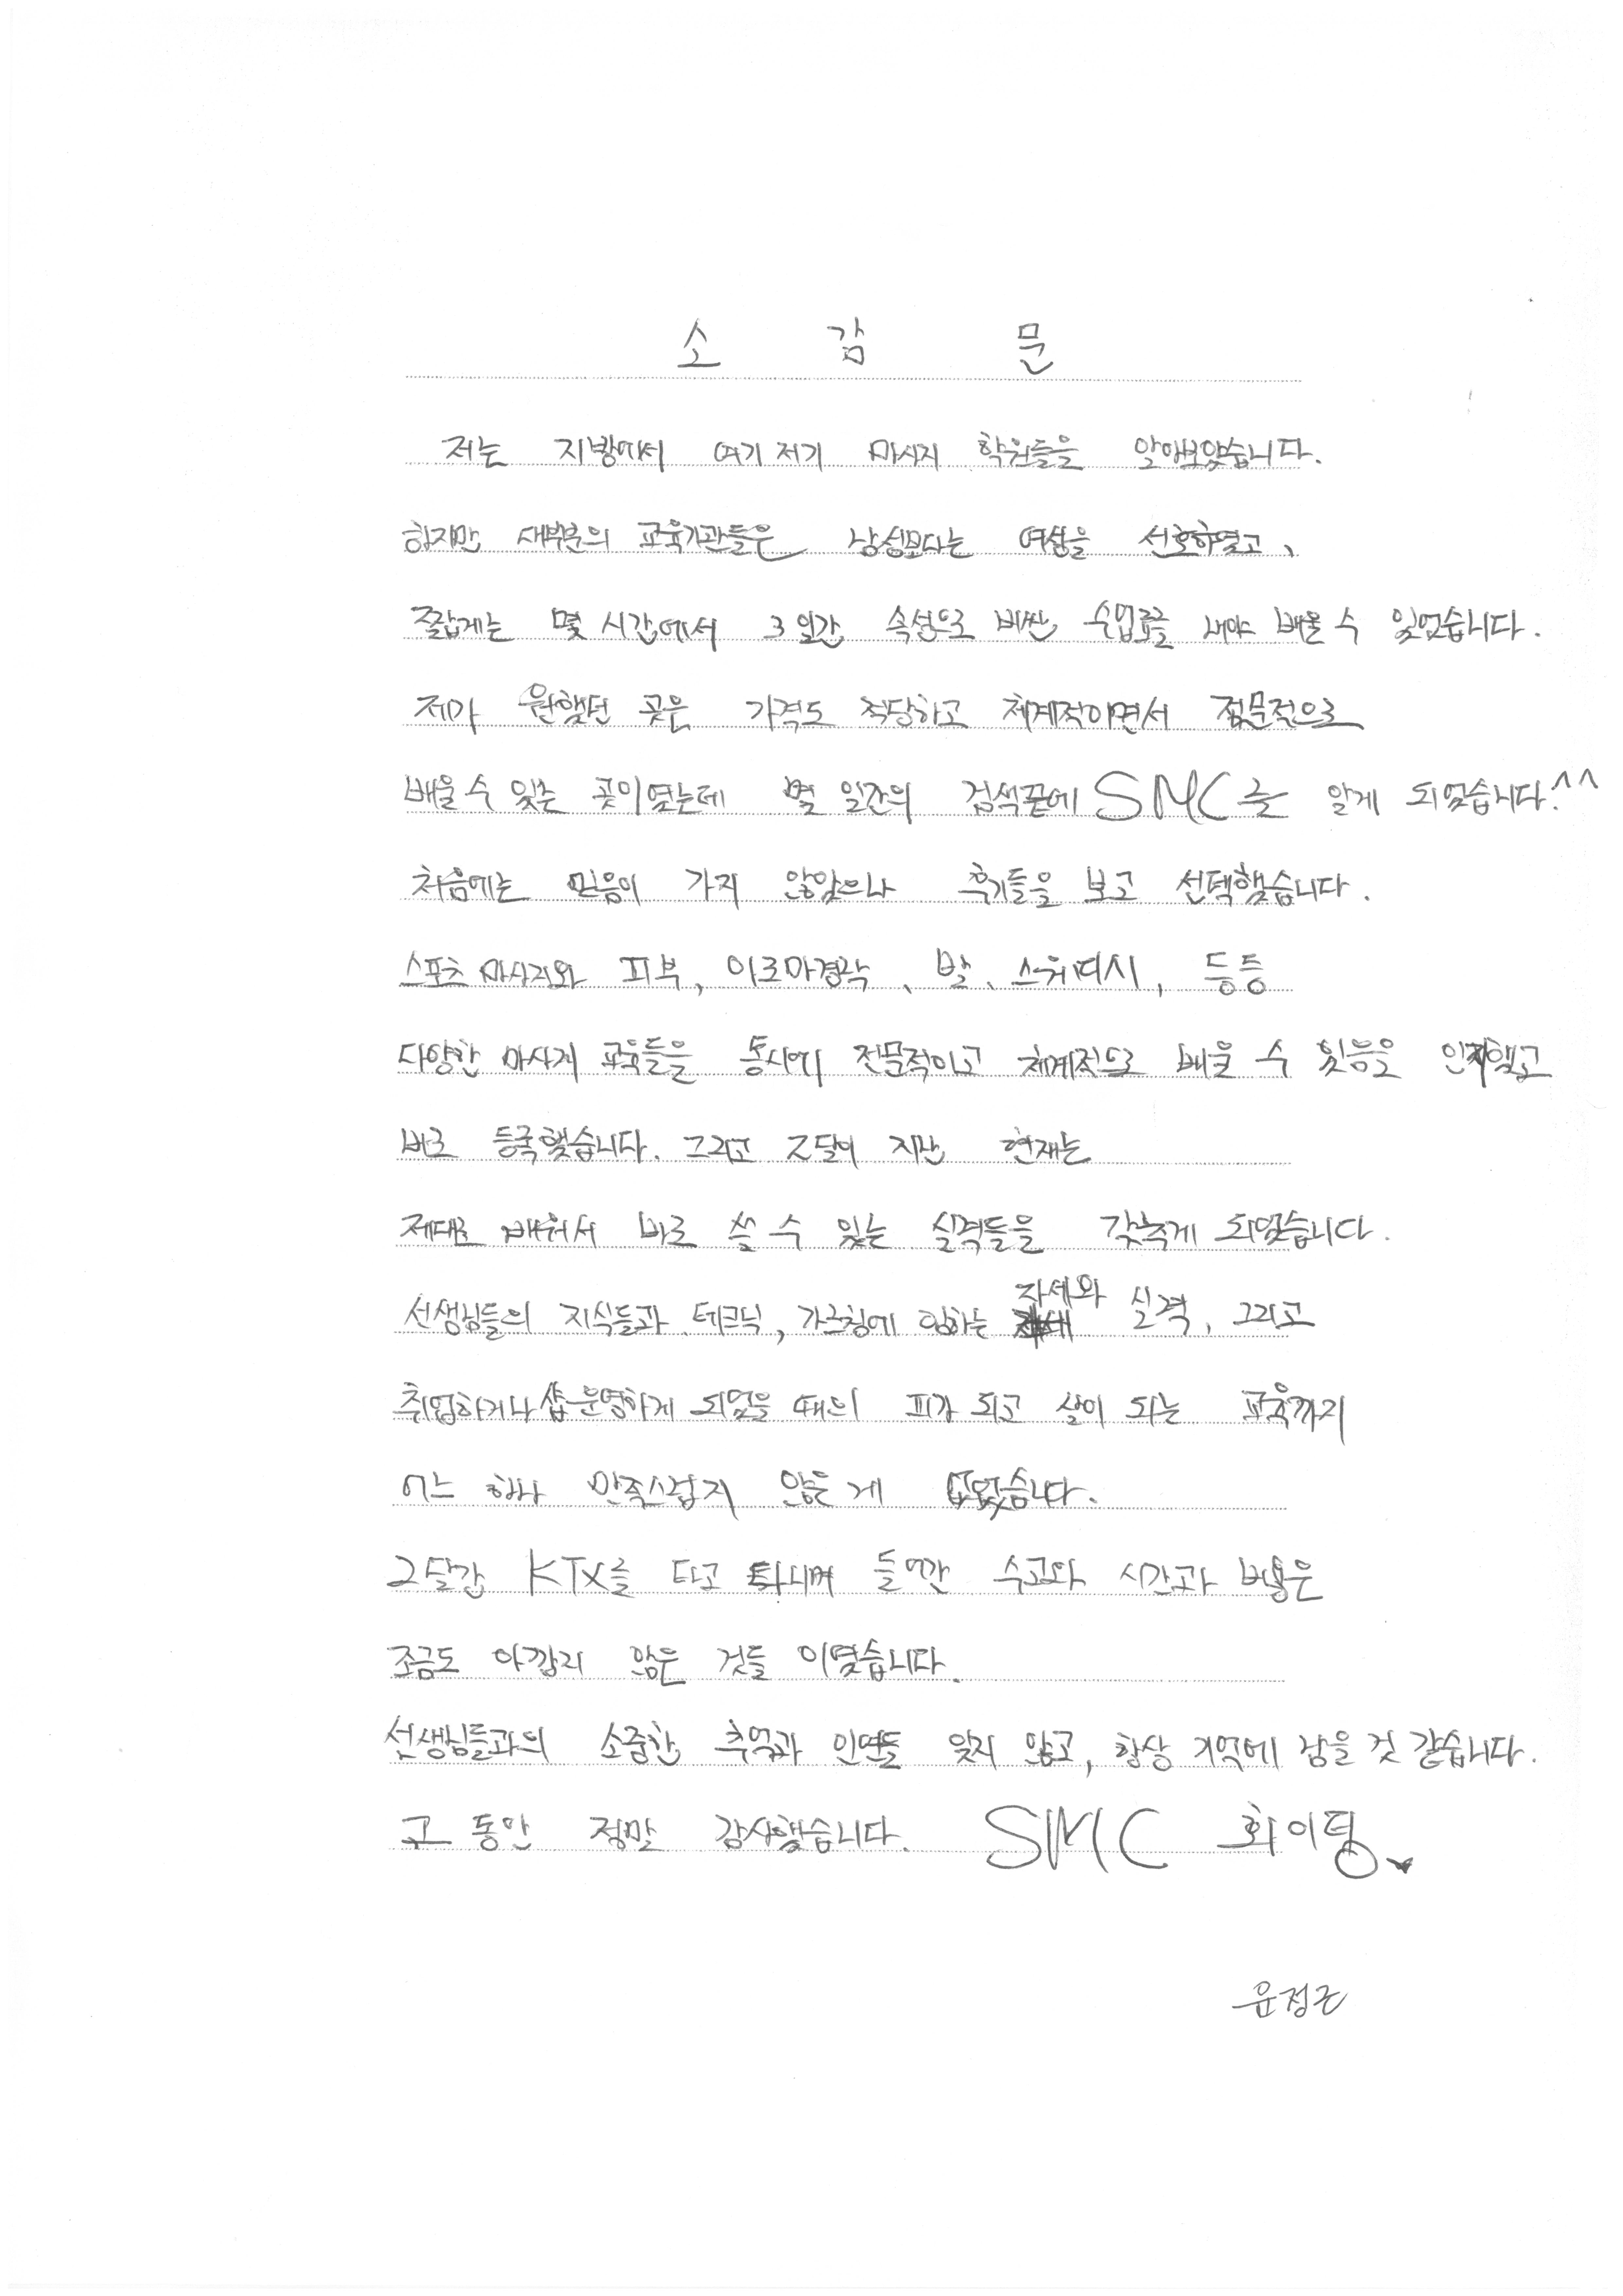 소 감 문
저는 지방에서 여기 저기 마사지 학원들을 알아보았습니다.
하지만 대부분의 교육기관들은 남성보다는 여성을 선호하였고,
짧게는 몇 시간에서 3일간 속성으로 비싼 수업료를 내야 배울 수 있었습니다.
제가 원했던 곳은 가격도 적당하고 체계적이면서 전문적으로
배울 수 있는 곳이였는데 몇 일간의 검색끝에 SMC를 알게 되었습니다.^^
처음에는 믿음이 가지 않았으나 후기들을 보고 선택했습니다.
스포츠 마사지와 피부, 아로마경락, 발, 스위디시, 등등
다양한 마사지 교육들을 동시에 전문적이고 체계적으로 배울 수 있음을 인지했고
바로 등록했습니다. 그리고 2달이 지난 현재는
제대로 배워서 바로 쓸 수 있는 실력들을 갖추게 되었습니다.
선생님들의 지식들과 테크닉, 가르침에 임하는 자세와 실력, 그리고
취업하거나 샵운영하게 되었을 때의 피가 되고 살이 되는 교육까지
어느 하나 만족스럽지 않은 게 없었습니다.
2달간 KTX를 타고 다니며 들어간 수고와 시간과 비용은
조금도 아깝지 않은 것들 이였습니다.
선생님들과의 소중한 추억과 인연들 잊지 않고, 항상 기억에 남을 것 같습니다.
그 동안 정말 감사했습니다. SMC 화이팅
윤정근